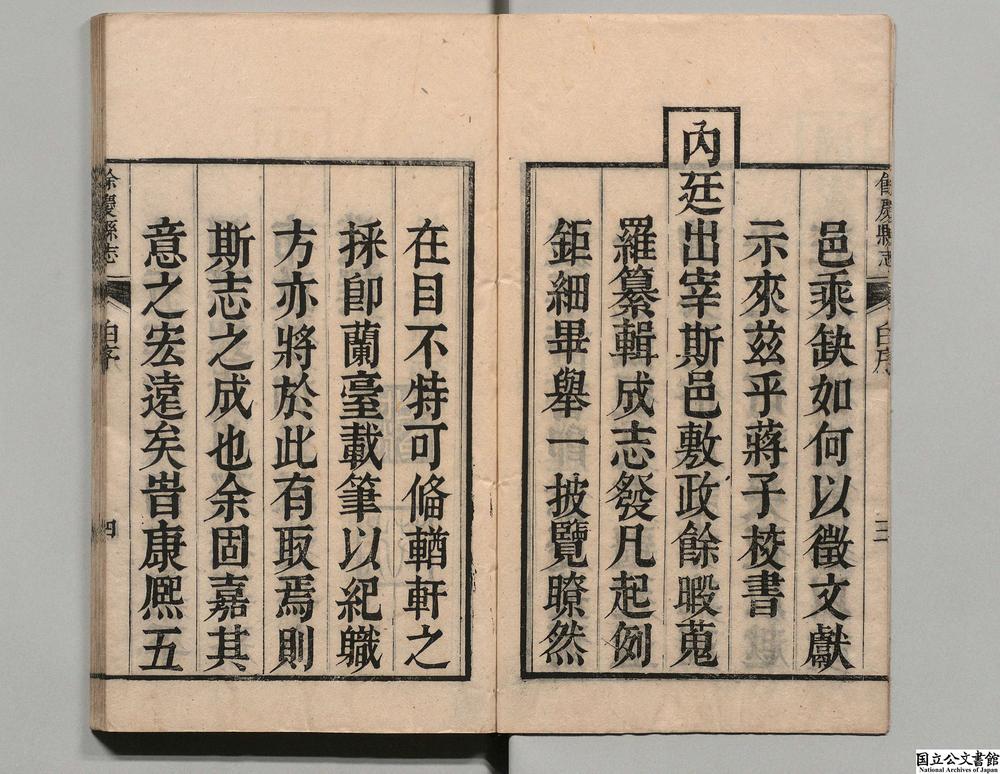 餘慶縣志
白序
三
邑乘缺如何以徵文獻
示來兹乎蔣子校書
內廷出宰斯邑敷政餘暇蒐
羅纂輯成志發凡起例
鉅細畢舉一披覽瞭然
在目不特可俻輶軒之
採卽蘭臺載筆以紀職
方亦將於此有取焉則
斯志之成也余固嘉其
意之宏遠矣昔康熈五
餘慶縣志
白序
四
国立公文書館
National Archives of Japan